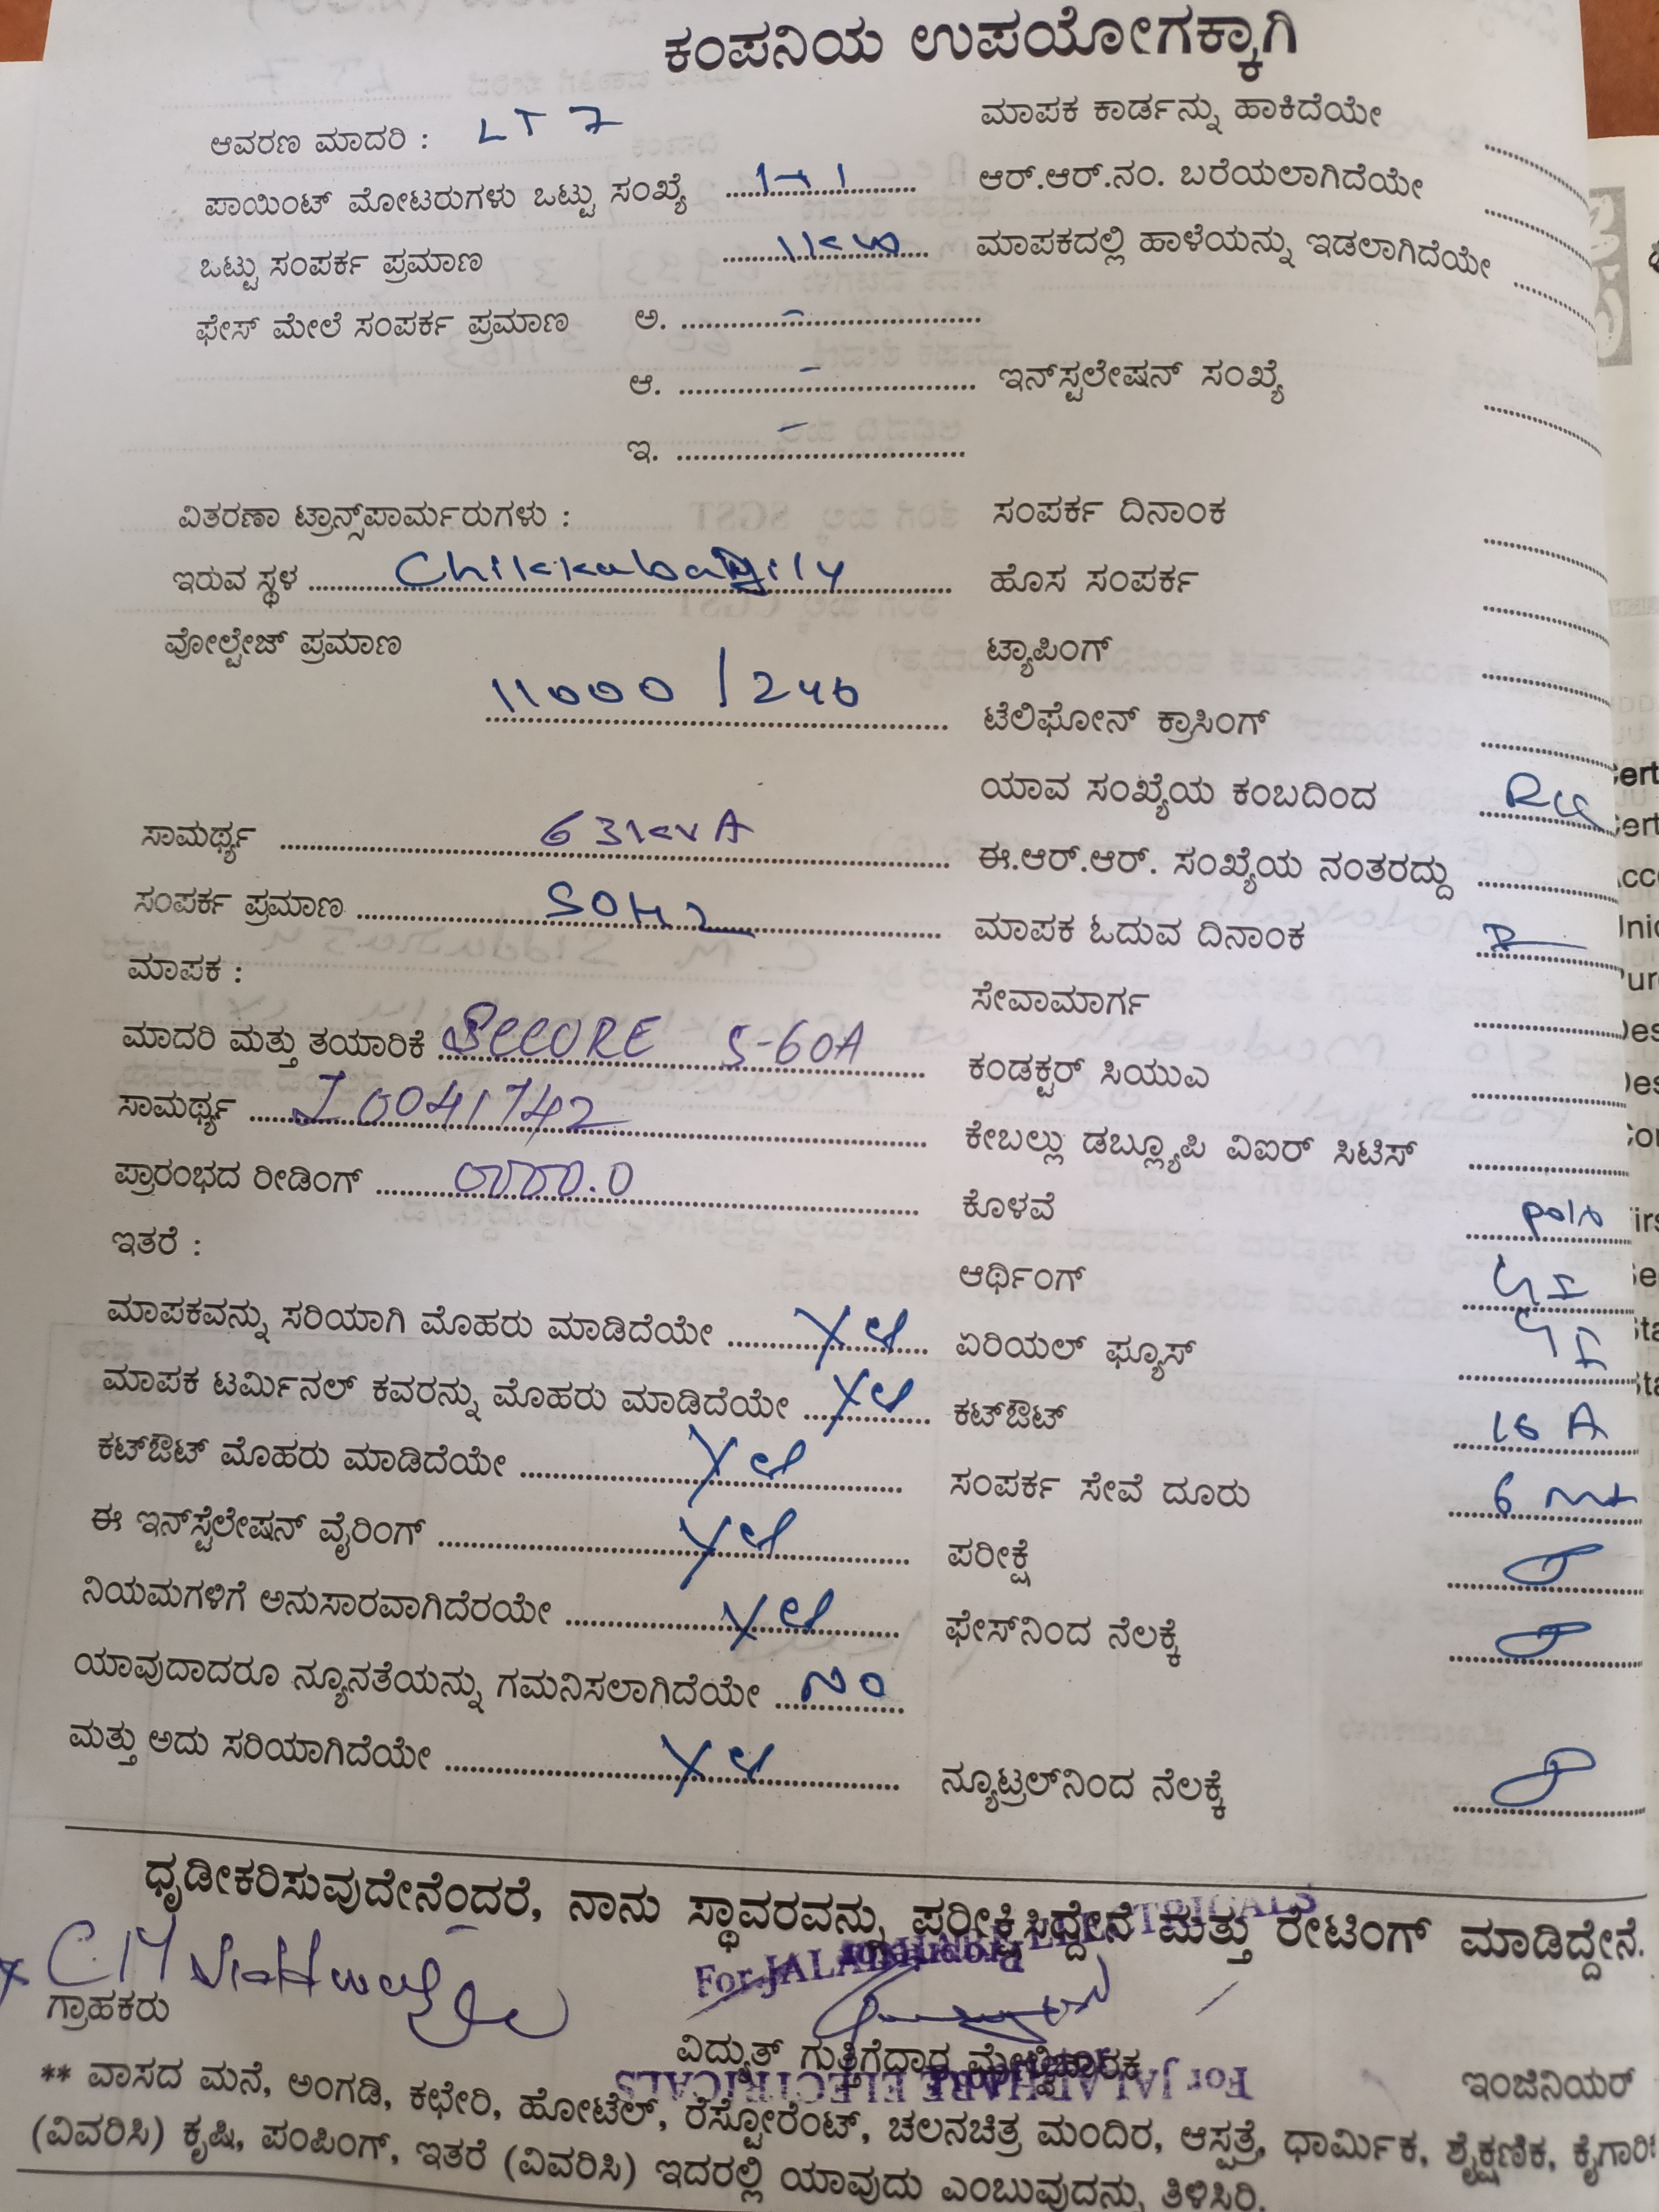 ಕಂಪನಿಯ ಉಪಯೋಗಕ್ಕಾಗಿ
ಆವರಣ ಮಾದರಿ : LT 7
ಮಾಪಕ ಕಾರ್ಡನ್ನು ಹಾಕಿದೆಯೇ
ಪಾಯಿಂಟ್ ಮೋಟರುಗಳು ಒಟ್ಟು ಸಂಖ್ಯೆ
ಆರ್.ಆರ್.ನಂ. ಬರೆಯಲಾಗಿದೆಯೇ
ಒಟ್ಟು ಸಂಪರ್ಕ ಪ್ರಮಾಣ 1kw
ಮಾಪಕದಲ್ಲಿ ಹಾಳೆಯನ್ನು ಇಡಲಾಗಿದೆಯೇ
ಫೇಸ್ ಮೇಲೆ ಸಂಪರ್ಕ ಪ್ರಮಾಣ ಅ. -
ಆ. -
ಇನ್‌ಸ್ಟಲೇಷನ್ ಸಂಖ್ಯೆ
ಇ. -
ವಿತರಣಾ ಟ್ರಾನ್ಸ್‌ಪಾರ್ಮರುಗಳು :
ಸಂಪರ್ಕ ದಿನಾಂಕ
ಇರುವ ಸ್ಥಳ
ಹೊಸ ಸಂಪರ್ಕ
ವೋಲ್ಟೇಜ್ ಪ್ರಮಾಣ
ಟ್ಯಾಪಿಂಗ್
11000 / 240
ಟೆಲಿಫೋನ್ ಕ್ರಾಸಿಂಗ್
ಯಾವ ಸಂಖ್ಯೆಯ ಕಂಬದಿಂದ
ಸಾಮರ್ಥ್ಯ 63kvA
ಈ.ಆರ್.ಆರ್. ಸಂಖ್ಯೆಯ ನಂತರದ್ದು
ಸಂಪರ್ಕ ಪ್ರಮಾಣ 50Hz
ಮಾಪಕ ಓದುವ ದಿನಾಂಕ
ಮಾಪಕ :
ಸೇವಾಮಾರ್ಗ
ಮಾದರಿ ಮತ್ತು ತಯಾರಿಕೆ SECURE 5-60A
ಕಂಡಕ್ಟರ್ ಸಿಯುಎ
ಸಾಮರ್ಥ್ಯ I0041742
ಕೇಬಲ್ಲು ಡಬ್ಲ್ಯೂಪಿ ವಿಐರ್ ಸಿಟಿಸ್
ಪ್ರಾರಂಭದ ರೀಡಿಂಗ್ 0000.0
ಕೊಳವೆ
ಇತರೆ :
ಆರ್ಥಿಂಗ್ GI
ಮಾಪಕವನ್ನು ಸರಿಯಾಗಿ ಮೊಹರು ಮಾಡಿದೆಯೇ Yes
ಏರಿಯಲ್ ಫ್ಯೂಸ್ GI
ಮಾಪಕ ಟರ್ಮಿನಲ್ ಕವರನ್ನು ಮೊಹರು ಮಾಡಿದೆಯೇ Yes
ಕಟ್‌ಔಟ್ 16 A
ಕಟ್‌ಔಟ್ ಮೊಹರು ಮಾಡಿದೆಯೇ Yes
ಸಂಪರ್ಕ ಸೇವೆ ದೂರು 6 mt
ಈ ಇನ್‌ಸ್ಟೆಲೇಷನ್ ವೈರಿಂಗ್ Yes
ಪರೀಕ್ಷೆ
ನಿಯಮಗಳಿಗೆ ಅನುಸಾರವಾಗಿದೆರಯೇ Yes
ಫೇಸ್‌ನಿಂದ ನೆಲಕ್ಕೆ
ಯಾವುದಾದರೂ ನ್ಯೂನತೆಯನ್ನು ಗಮನಿಸಲಾಗಿದೆಯೇ No
ಮತ್ತು ಅದು ಸರಿಯಾಗಿದೆಯೇ Yes
ನ್ಯೂಟ್ರಲ್‌ನಿಂದ ನೆಲಕ್ಕೆ
ಧೃಡೀಕರಿಸುವುದೇನೆಂದರೆ, ನಾನು ಸ್ಥಾವರವನ್ನು ಪರೀಕ್ಷಿಸಿದ್ದೇನೆ ಮತ್ತು ರೇಟಿಂಗ್ ಮಾಡಿದ್ದೇನೆ.
ಗ್ರಾಹಕರು
ವಿದ್ಯುತ್ ಗುತ್ತಿಗೆದಾರ ಮೇಲ್ವಿಚಾರಕ
ಇಂಜಿನಿಯರ್
** ವಾಸದ ಮನೆ, ಅಂಗಡಿ, ಕಛೇರಿ, ಹೋಟೆಲ್, ರೆಸ್ಟೋರೆಂಟ್, ಚಲನಚಿತ್ರ ಮಂದಿರ, ಆಸ್ಪತ್ರೆ, ಧಾರ್ಮಿಕ, ಶೈಕ್ಷಣಿಕ,
(ವಿವರಿಸಿ) ಕೃಷಿ, ಪಂಪಿಂಗ್, ಇತರೆ (ವಿವರಿಸಿ) ಇದರಲ್ಲಿ ಯಾವುದು ಎಂಬುವುದನ್ನು ತಿಳಿಸಿರಿ.